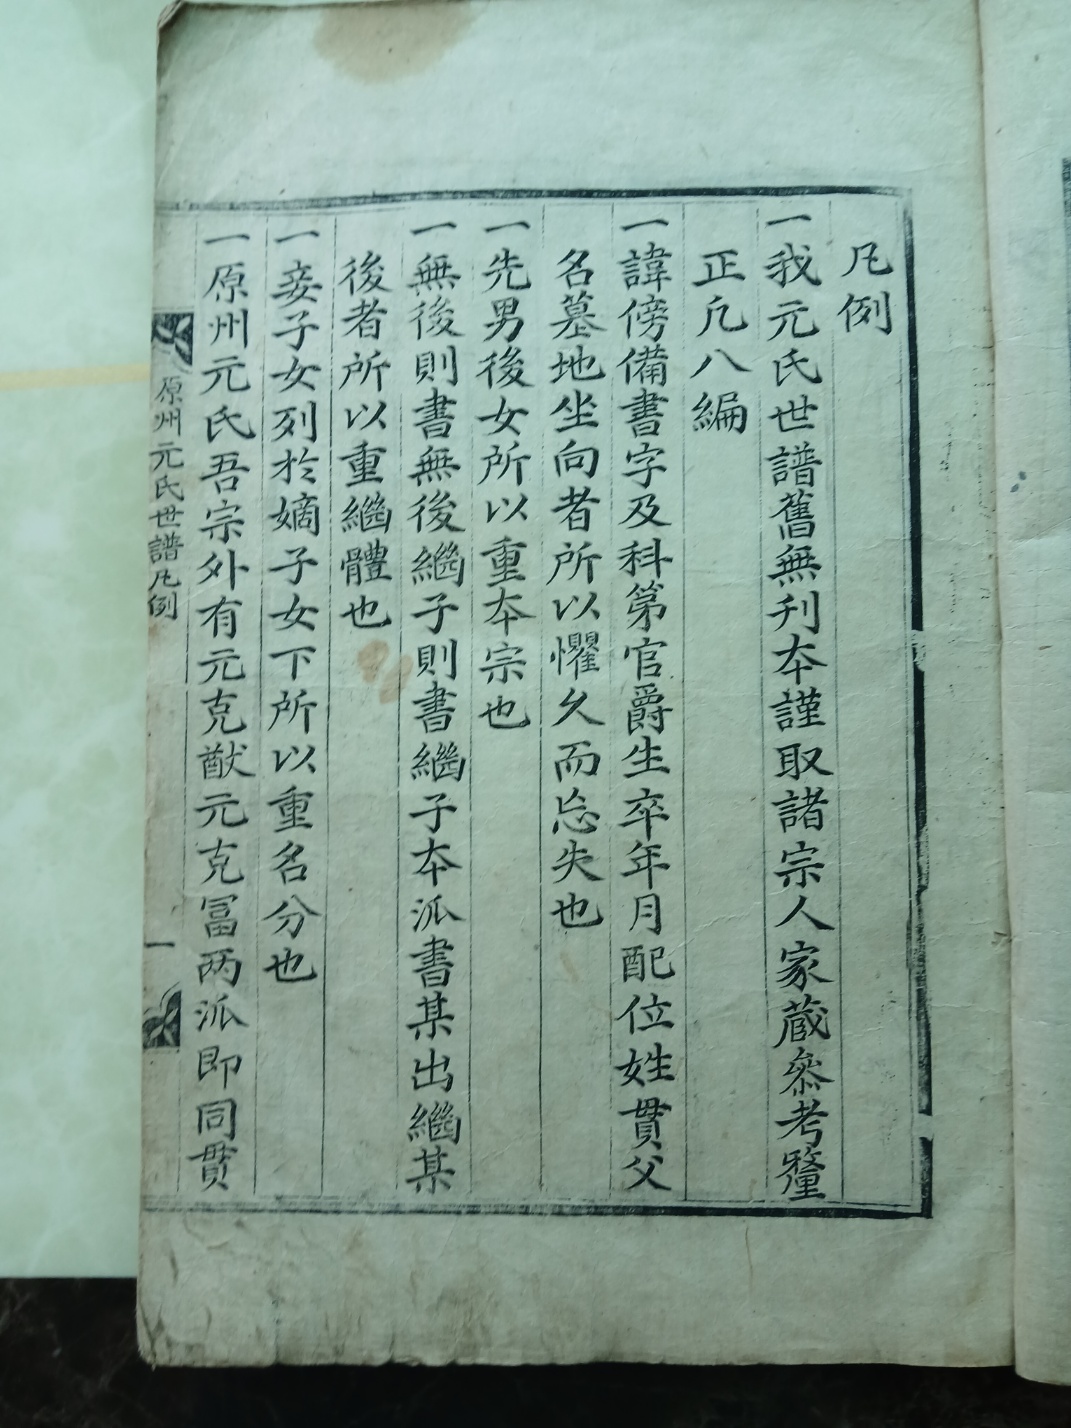 凡例
一我元氏世譜舊無刋本謹取諸宗人家藏叅考釐
正凡八編
一諱傍備書字及科第官爵生卒年月配位姓貫父
名墓地坐向者所以懼久而忘失也
一先男後女所以重本宗也
一無後則書無後繼子則書繼子本派書某出繼某
後者所以重繼體也
一妾子女列於嫡子女下所以重名分也
一原州元氏吾宗外有元克猷元克冨兩派即同貫
原州元氏世譜凡例
一